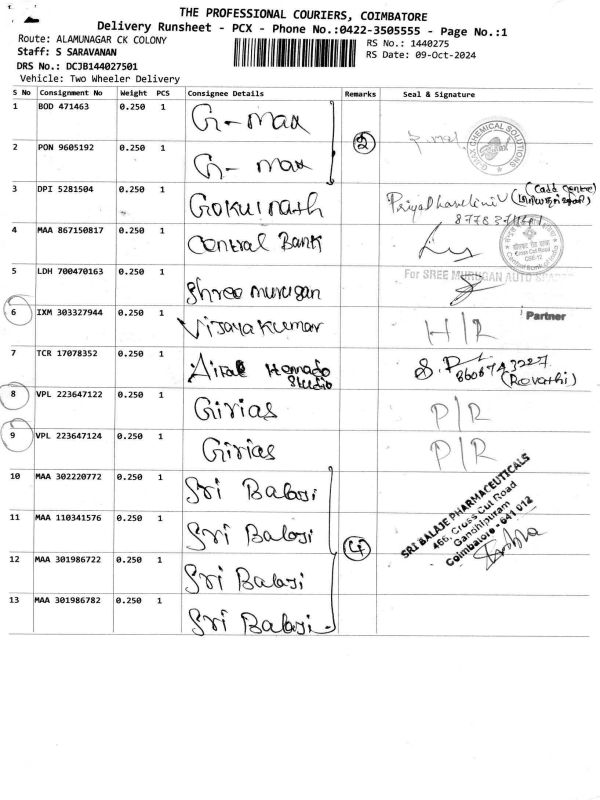 THE PROFESSIONAL COURIERS, COIMBATORE
Delivery Runsheet - PCX - Phone No.:0422-3505555 - Page No.:1
Route: ALAMUNAGAR CK COLONY
RS No.: 1440275
Staff: S SARAVANAN
RS Date: 09-Oct-2024
DRS No.: DCJB144027501
Vehicle: Two Wheeler Delivery
S No Consignment No Weight PCS Consignee Details Remarks Seal & Signature
1 BOD 471463 0.250 1 G-max
2 PON 9605192 0.250 1 G-max 2
GUJAJ CHEMICAL SOLUTIONS
3 DPI 5281504 0.250 1 Gokulnath (Cadd Centre)
4 MAA 867150817 0.250 1 Central Bank
Cross Cut Road
CBE-12
Central Bank of India
5 LDH 700470163 0.250 1 Shree murugan For SREE MURUGAN AUTO
Partner
6 IXM 303327944 0.250 1 Vijayakumar H/R
7 TCR 17078352 0.250 1 Studio 8606743227
(Revathi)
8 VPL 223647122 0.250 1 Girias P/R
9 VPL 223647124 0.250 1 Girias P/R
10 MAA 302220772 0.250 1 Sri Balaji
11 MAA 110341576 0.250 1 Sri Balaji
12 MAA 301986722 0.250 1 Sri Balaji 4
13 MAA 301986782 0.250 1 Sri Balaji
SRI BALAJE PHARMACEUTICALS
466, Cross Cut Road
Gandhipuram
Coimbatore - 641 012